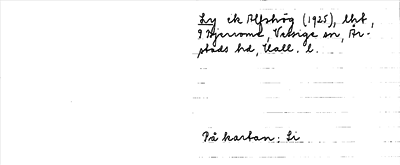 Ly ek Alfshög (1925), lht,
9 Hjernome, Vessige sn, År-
stads hd, Hall. l.
På kartan: Li